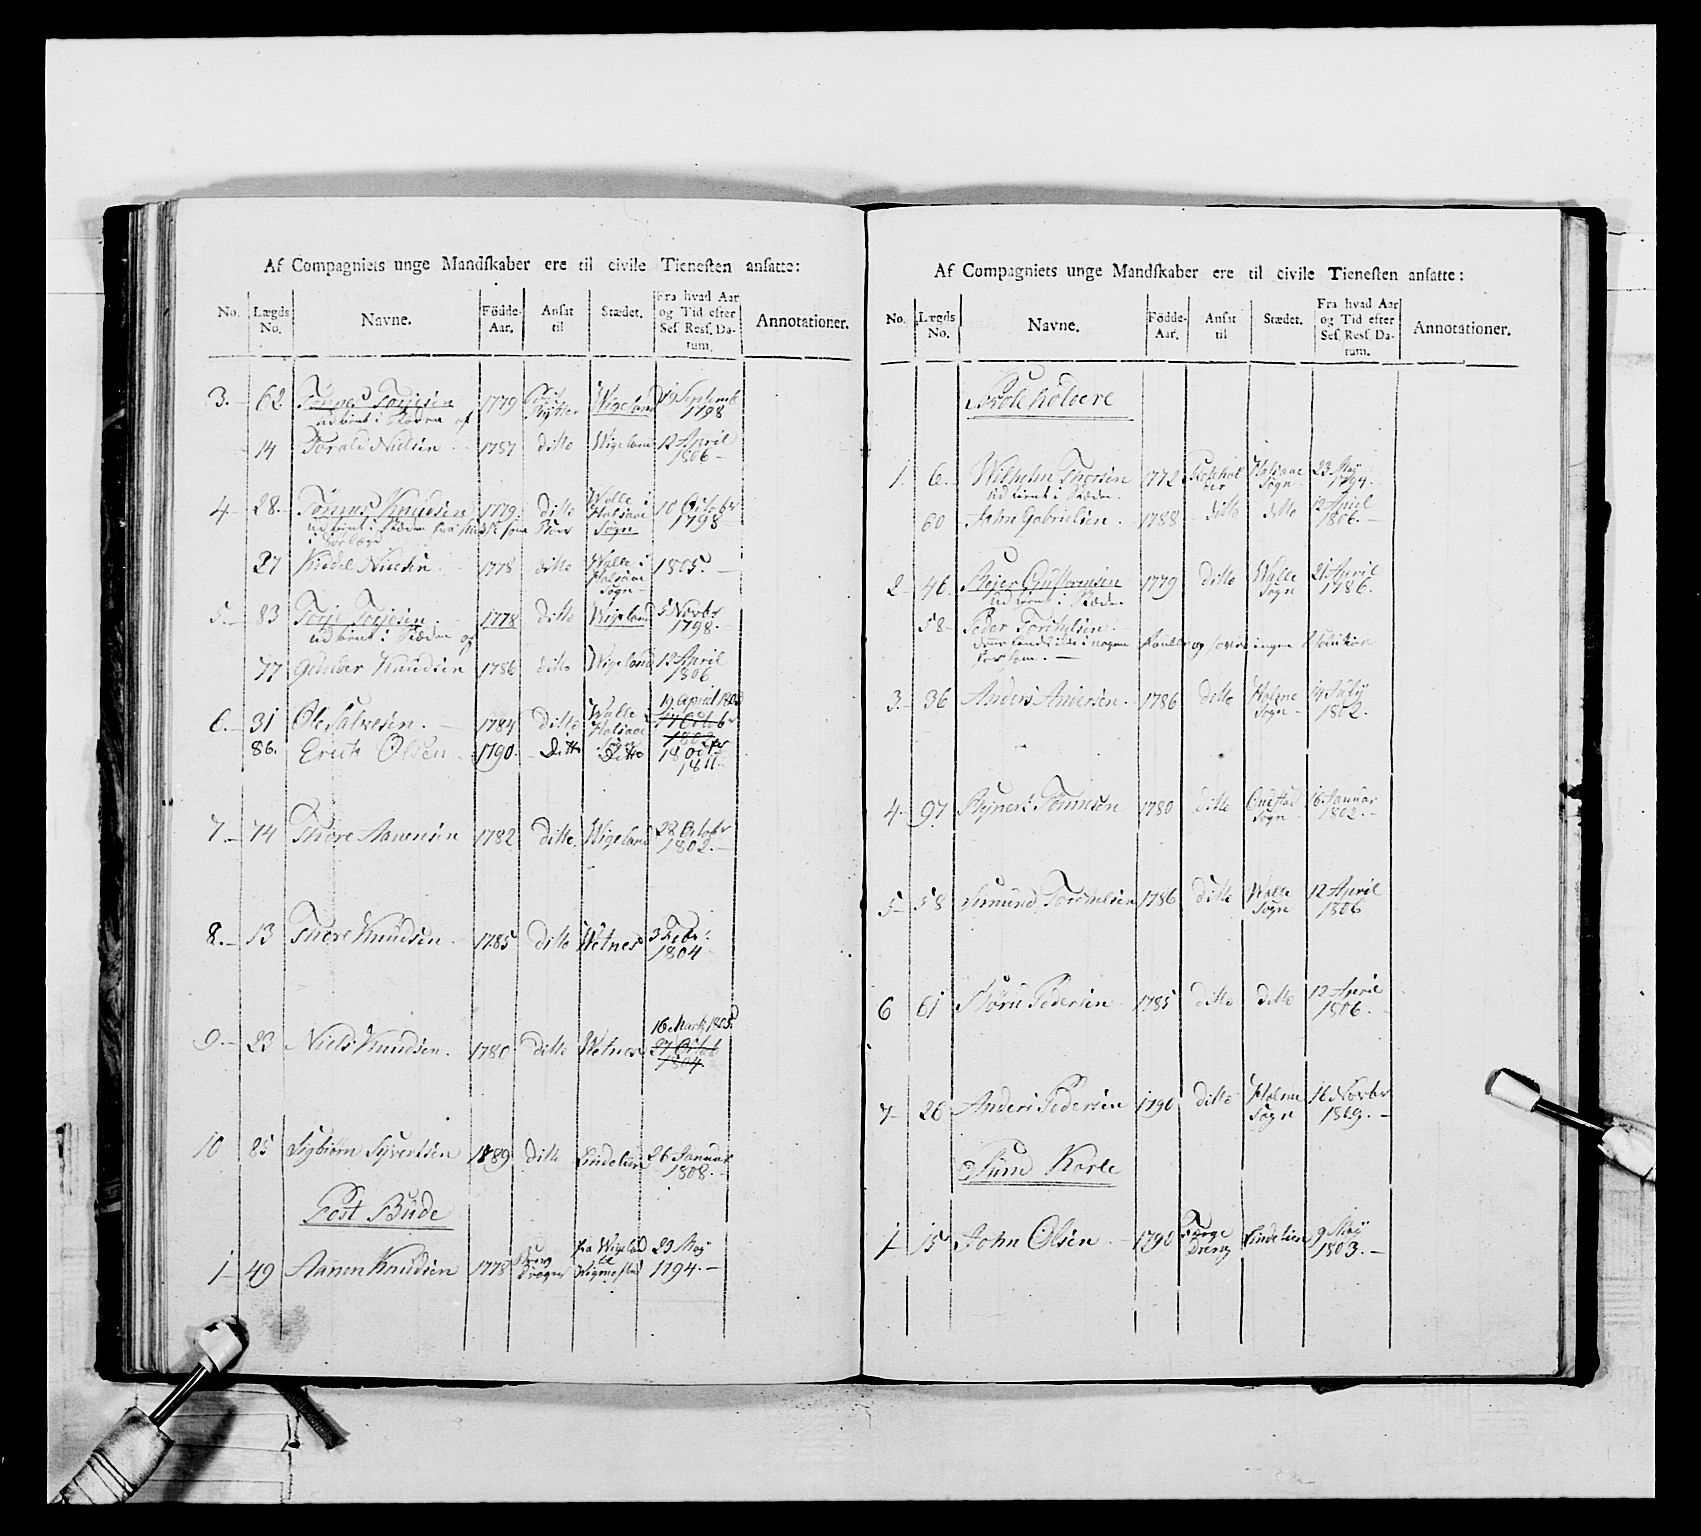 Af Compagniets unge Mandſkaber ere til civile Tieneſten anſatte:
No. Lægds No. Navne. Födde-Aar. Anſat til Stædet. Fra hvad Aar og Tid efter Seſ. Reſſ. Da-tum. Annotationer.
3. 62 Tønnes Torjesen 1779 Wigeland 19 Septemb 1798
udtient i Stæden af
14 Torald Nielsen 1787 ditto Wigeland 12 April 1806
4 28. Tønnes Knudsen 1779. ditto Walle i Halsaae Sogn 10 Octobr 1798
udtient i Stæden
27 Kiddel Nielsen 1778 ditto Walle i Halsaae Sogn 1805.
5. 83 Torje Torjesen 1778 ditto Wigeland 5 Novbr 1798.
udtient i Stæden af
77 Gunder Knudsen 1786 ditto Wigeland 12 April 1806
6. 31 Ole Salvesen. 1784 Ditto Walle Halsaae Sogn 19 April 1803 17 Octobr 1802
86. Erich Olsen 1790. Ditto Ditto 18 Octbr 1811.
7. 74 Thore Aanensen 1782 Ditto Wigeland 28 Octobr 1802.
8. 13 Thore Knudsen. 1785 ditto Wetnes 3 Febr: 1804
9. 23 Niels Knudsen. 1780 ditto Wetnes 16 Marty 1805 27 Octob 1804
10 85 Sigbiørn Syvertsen 1789 ditto Lindelien 26 Januar 1808.
Post Bude
1 49 Aanen Knudsen 1778 fra Wigeland til Wigmostad 23 May 1794.
Af Compagniets unge Mandſkaber ere til civile Tieneſten anſatte:
No. Lægds No. Navne. Födde-Aar. Anſat til Stædet. Fra hvad Aar og Tid efter Seſ. Reſſ. Da-tum. Annotationer.
Skoleholdere
1. 6. Wilhelm Thorsen 1772 Skolehol der Halsaae Sogn 23 May 1794.
udtient i Stæden.
60 John Gabrielsen. 1788 ditto ditto 12 April 1806.
2 46. Rejer Gustovnsen 1779 ditto Walle Sogn 21 April 1786.
udtient i Stæden
58 Peder Torkelsen.
3. 36 Anders Andersen. 1786 ditto Holme Sogn 14 July 1802.
4. 97 Rejnert Tønnesen 1780 ditto Sogn 16 Januar 1802.
5 58 Simund Torkelsen 1786 ditto Walle Sogn 12 April 1806
6 61 Pedersen 1785 ditto ditto 12 April 1806.
7 26 Anders Pedersen 1790 ditto Holme Sogn 16 Novbr 1809.
Sund Karle
1 15 John Olsen 1790 Færge Dreng Lindelien 9 May 1803.